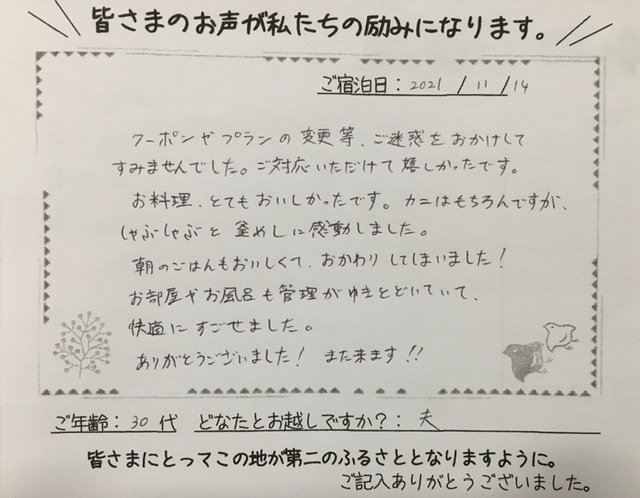 皆さまのお声が私たちの励みになります。
ご宿泊日：2021 / 11 / 14
クーポンやプランの変更等、ご迷惑をおかけして
すみませんでした。ご対応いただけて嬉しかったです。
お料理、とてもおいしかったです。カニはもちろんですが、
しゃぶしゃぶと釜めしに感動しました。
朝のごはんもおいしくて、おかわりしてしまいました！
お部屋やお風呂も管理がゆきとどいていて、
快適にすごせました。
ありがとうございました！ また来ます!!
ご年齢：30代 どなたとお越しですか？：夫
皆さまにとってこの地が第二のふるさととなりますように。
ご記入ありがとうございました。